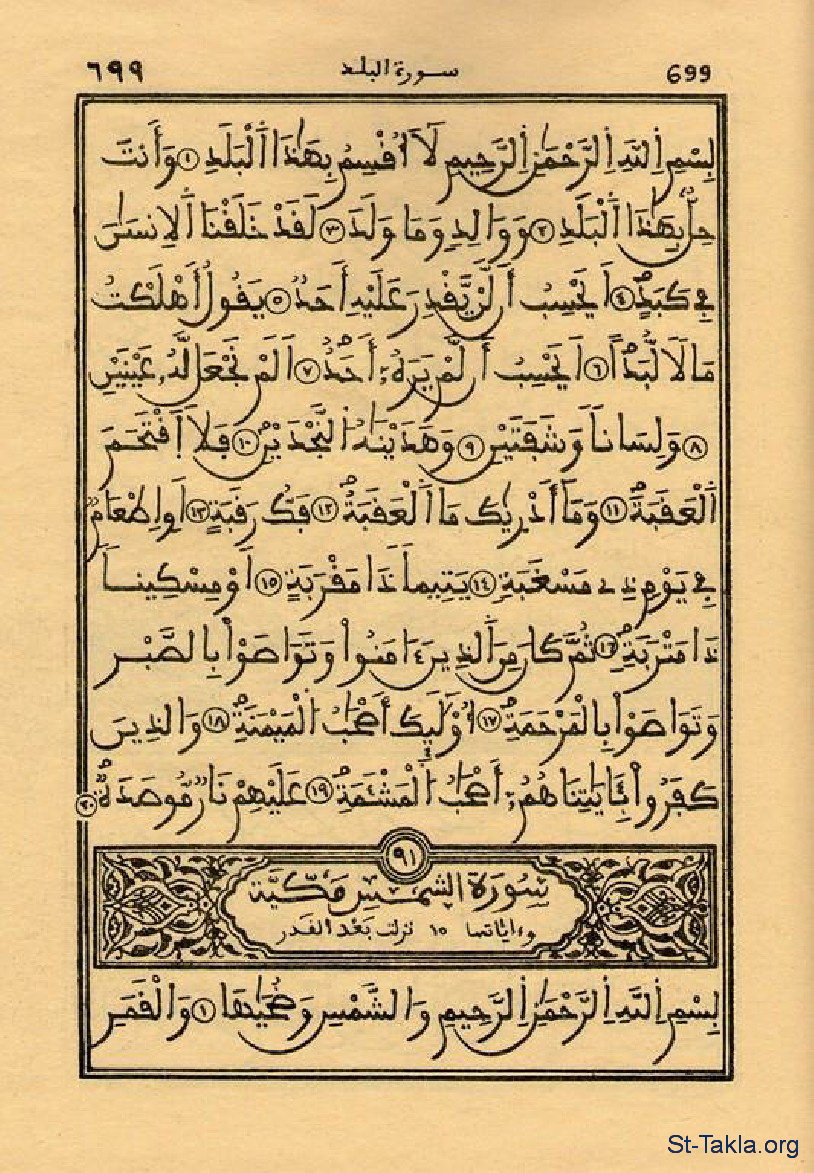 ٦٩٩ سورة البلد 699
بِسْمِ اِ۬للَّهِ اِ۬لرَّحْمَٰنِ اِ۬لرَّحِيمِ لَآ أُفْسِمُ بِهَٰذَا اَ۬لْبَلَدِ ١ وَأَنتَ
حِلُّۢ بِهَٰذَا اَ۬لْبَلَدِ ٢ وَوَالِدٖ وَمَا وَلَدَ ٣ لَقَدْ خَلَقْنَا اَ۬لِانسَٰنَ
فِے كَبَدٍ ٤ اَيَحْسِبُ أَن لَّنْ يَّقْدِرَ عَلَيْهِ أَحَدٞ ٥ يَقُولُ أَهْلَكْتُ
مَالاٗ لُّبَداً ٦ اَيَحْسِبُ أَن لَّمْ يَرَهُۥٓ أَحَدٌ ٧ اَلَمْ نَجْعَل لَّهُۥ عَيْنَيْنِ
٨ وَلِسَاناٗ وَشَفَتَيْنِ ٩ وَهَدَيْنَٰهُ اُ۬لنَّجْدَيْنِ ١٠ فَلَا اَ۪قْتَحَمَ
اَ۬لْعَقَبَةَ ١١ وَمَآ أَدْر۪يٰكَ مَا اَ۬لْعَقَبَةُ ١٢ فَكُّ رَقَبَةٍ ١٣ اَوِ اِطْعَٰمٞ
فِے يَوْمٖ ذِے مَسْغَبَةٖ ١٤ يَتِيماٗ ذَا مَقْرَبَةٍ ١٥ اَوْ مِسْكِيناٗ
ذَا مَتْرَبَةٖ ١٦ ثُمَّ كَانَ مِنَ اَ۬لذِينَ ءَامَنُواْ وَتَوَاصَوْاْ بِالصَّبْرِ
وَتَوَاصَوْاْ بِالْمَرْحَمَةِ ١٧ أُوْلَٰٓئِكَ أَصْحَٰبُ اُ۬لْمَيْمَنَةِ ١٨ وَالذِينَ
كَفَرُواْ بِـَٔايَٰتِنَا هُمُۥٓ أَصْحَٰبُ اُ۬لْمَشْـَٔمَةِ ١٩ عَلَيْهِمْ نَارٞ مُّوصَدَةٌ ٢٠
٩١
سُورَةُ الشَّمْسِ مَكِّيَّة
وءاياتها ١٥ نزلت بَعْدَ القدر
بِسْمِ اِ۬للَّهِ اِ۬لرَّحْمَٰنِ اِ۬لرَّحِيمِ وَالشَّمْسِ وَضُحَيٰهَا ١ وَالْقَمَرِ
St-Takla.org